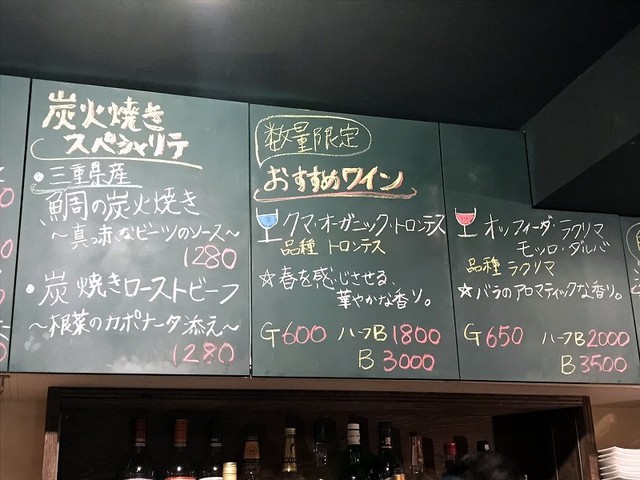 炭火焼き
スペシャリテ
・三重県産
鯛の炭火焼き
～真っ赤なビーツのソース～
1280
・炭焼きローストビーフ
～根菜のカポナータ添え～
1280
数量限定
おすすめワイン
クマ・オーガニック・トロンテス
品種 トロンテス
☆春を感じさせる、
華やかな香り。
G600 ハーフB1800
B3000
オッフィーダ・ラクリマ
モッロ・ダルバ
品種 ラクリマ
☆バラのアロマティックな香り。
G650 ハーフB2000
B3500